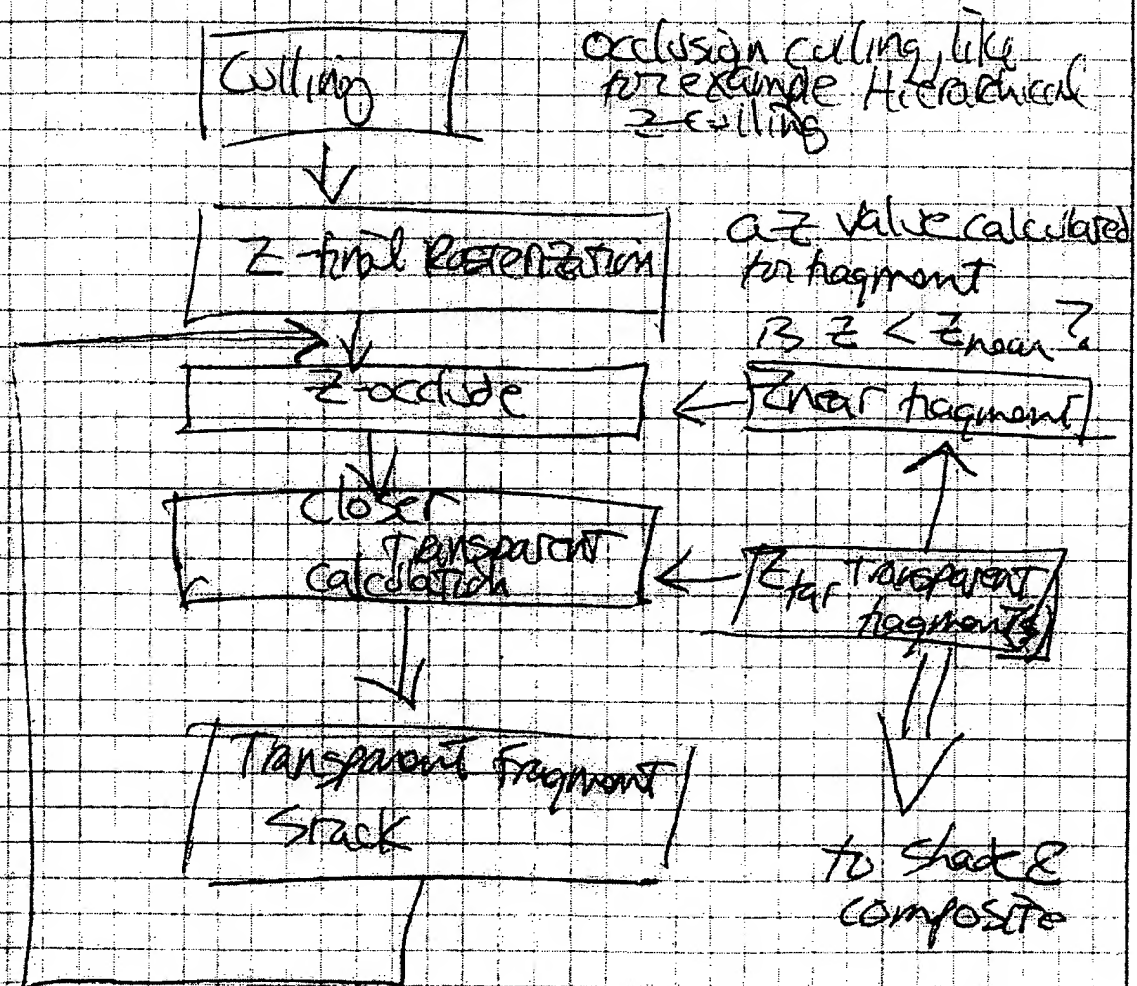 Culling
occlusion culling, like
for example Hierarchical
Z-culling
Z-final Rasterization
a Z value calculated
for fragment
is Z < Znear?
Z-occlude
Znear fragment
Closer
Transparent
Calculation
Zfar Transparent
fragment(s)
Transparent Fragment
Stack
to shade &
composite